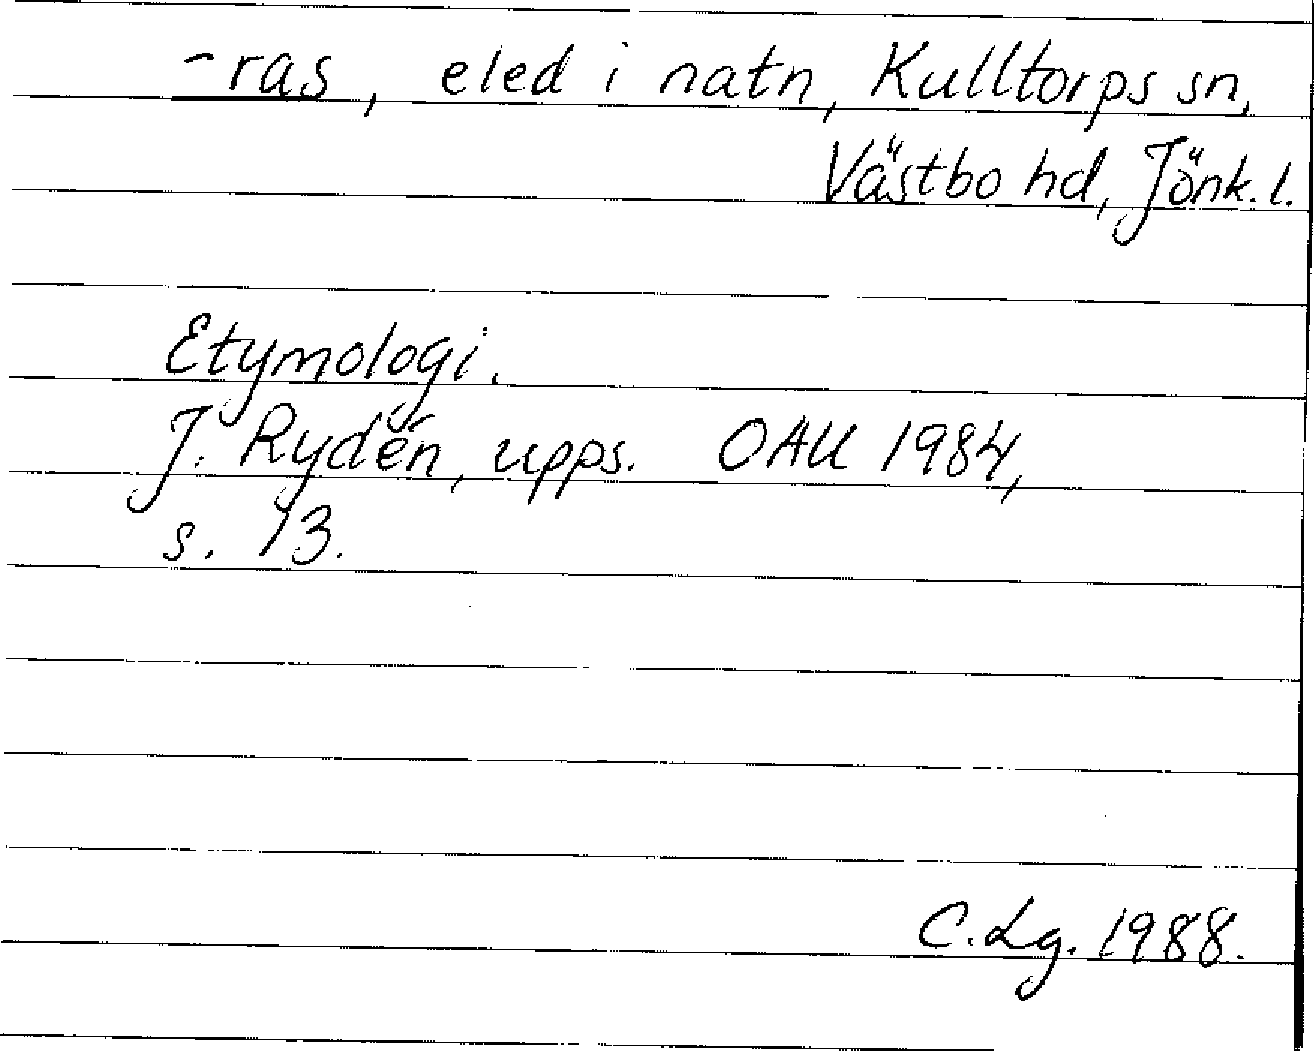 -ras, eled i natn, Kulltorps sn,
Västbo hd, Jönk. l.
Etymologi.
J. Rydén, upps. OAU 1984,
s. 13.
C. Lg. 1988.